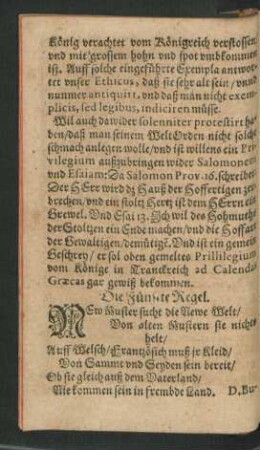 König verachtet vom Königreich verstossen/
vnd mit grossem hohn vnd spot vmbkommen
ist. Auff solche eingeführte Exempla antwor-
tet vnser Ethicus, daß sie sehr alt sein/ vnnd
nunmer antiquirt, vnd daß man nicht exem-
plicis, sed legibus, indiciren müsse.
Wil auch dawider solenniter protestirt ha-
ben/ daß man seinem WeltOrden nicht solche
schmach anlegen wolle/ vnd ist willens ein Pri-
vilegium außzubringen wider Salomonem
vnd Esaiam: Da Salomon Prov. 16. schreibet
Der HErr wird dz Hauß der Hoffertigen zer-
brechen/ vnd ein stoltz Hertz ist dem HErrn ein
Grewel. Vnd Esai 13. Ich wil des Hohmuths
der Stoltzen ein Ende machen/ vnd die Hoffart
der Gewaltigen/ demütige. Vnd ist ein gemein
Geschrey/ er sol oben gemeltes Prillilegium
vom Könige in Franckreich ad Calendas
Græcas gar gewiß bekommen.
Die Fünffte Regel.
NEw Muster sucht die Newe Welt/
Von alten Mustern sie nichts
helt/
Auff Welsch/ Frantzösich muß jr Kleid/
Von Sammt vnd Seyden sein bereit/
Ob sie gleich auß dem Vaterland/
Nie kommen sein in frembde Land.
D. Bur